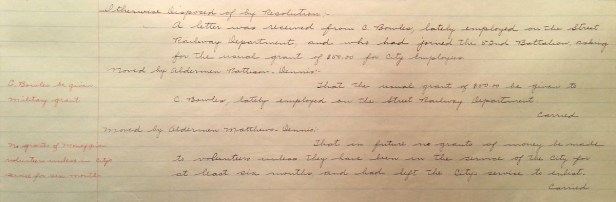 Otherwise disposed of by Resolution -
A letter was received from C. Bowles, lately employed on the Street
Railway Department, and who had joined the 52nd Battalion, asking
for the usual grant of $50.00 for City employees
Moved by Aldermen Mattison - Dennis -
C. Bowles be given
Military grant
That the usual grant of $50.00 be given to
C Bowles, lately employed on the Street Railway Department
Carried
Moved by Aldermen Matthews - Dennis.
No grants of money given
volunteers unless in City's
service for six months
That in future no grants of money be made
to volunteers unless they have been in the service of the City for
at least six months and had left the City's service to enlist.
Carried